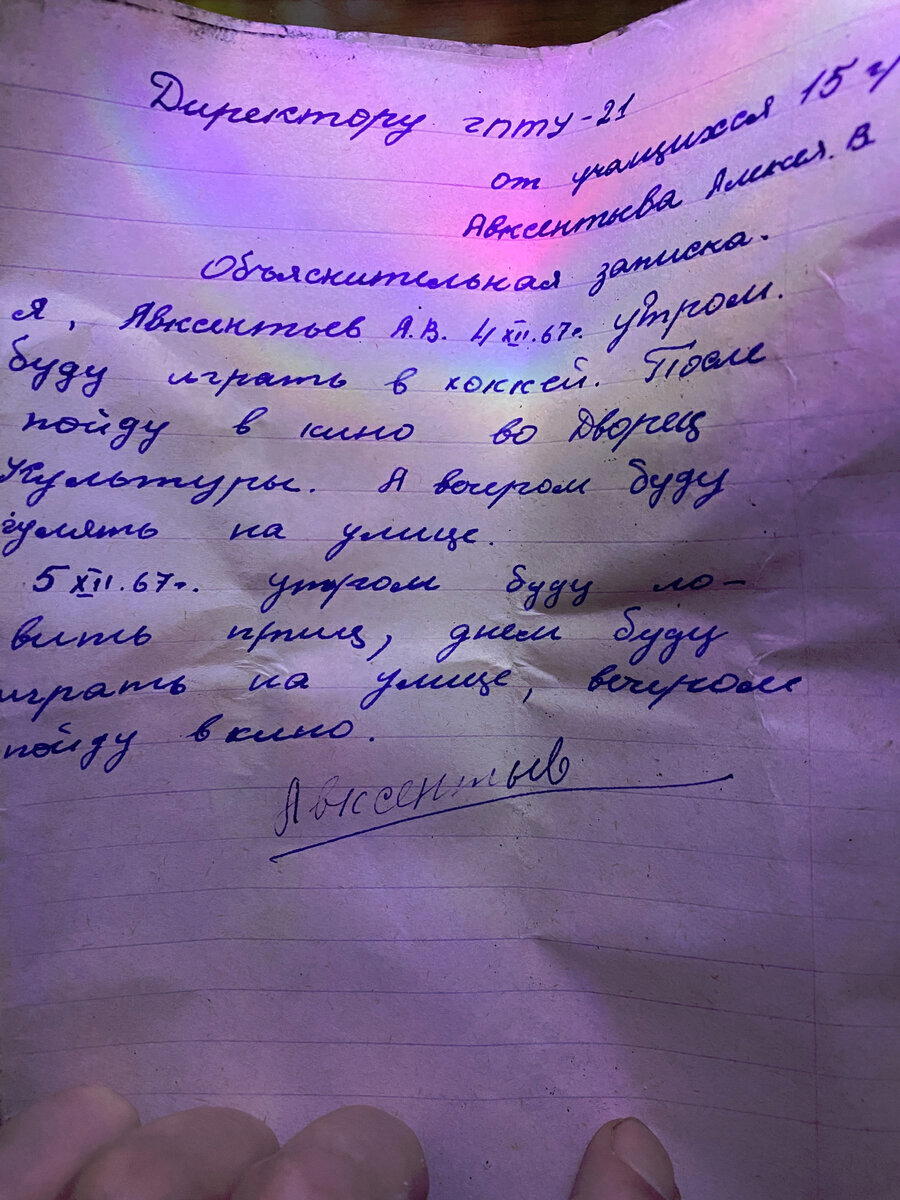 Директору гпту-21
от учащихся 15 г/
Авксентьва Алексея. В
Объяснительная записка.
Я, Авксентьев А.В. 4 XII.67г. утром.
буду играть в хоккей. После
пойду в кино во Дворец
Культуры. А вечером буду
гулять на улице.
5 XII.67г. утром буду ло-
вить птиц, днем буду
играть на улице, вечером
пойду в кино.
Авксентьв